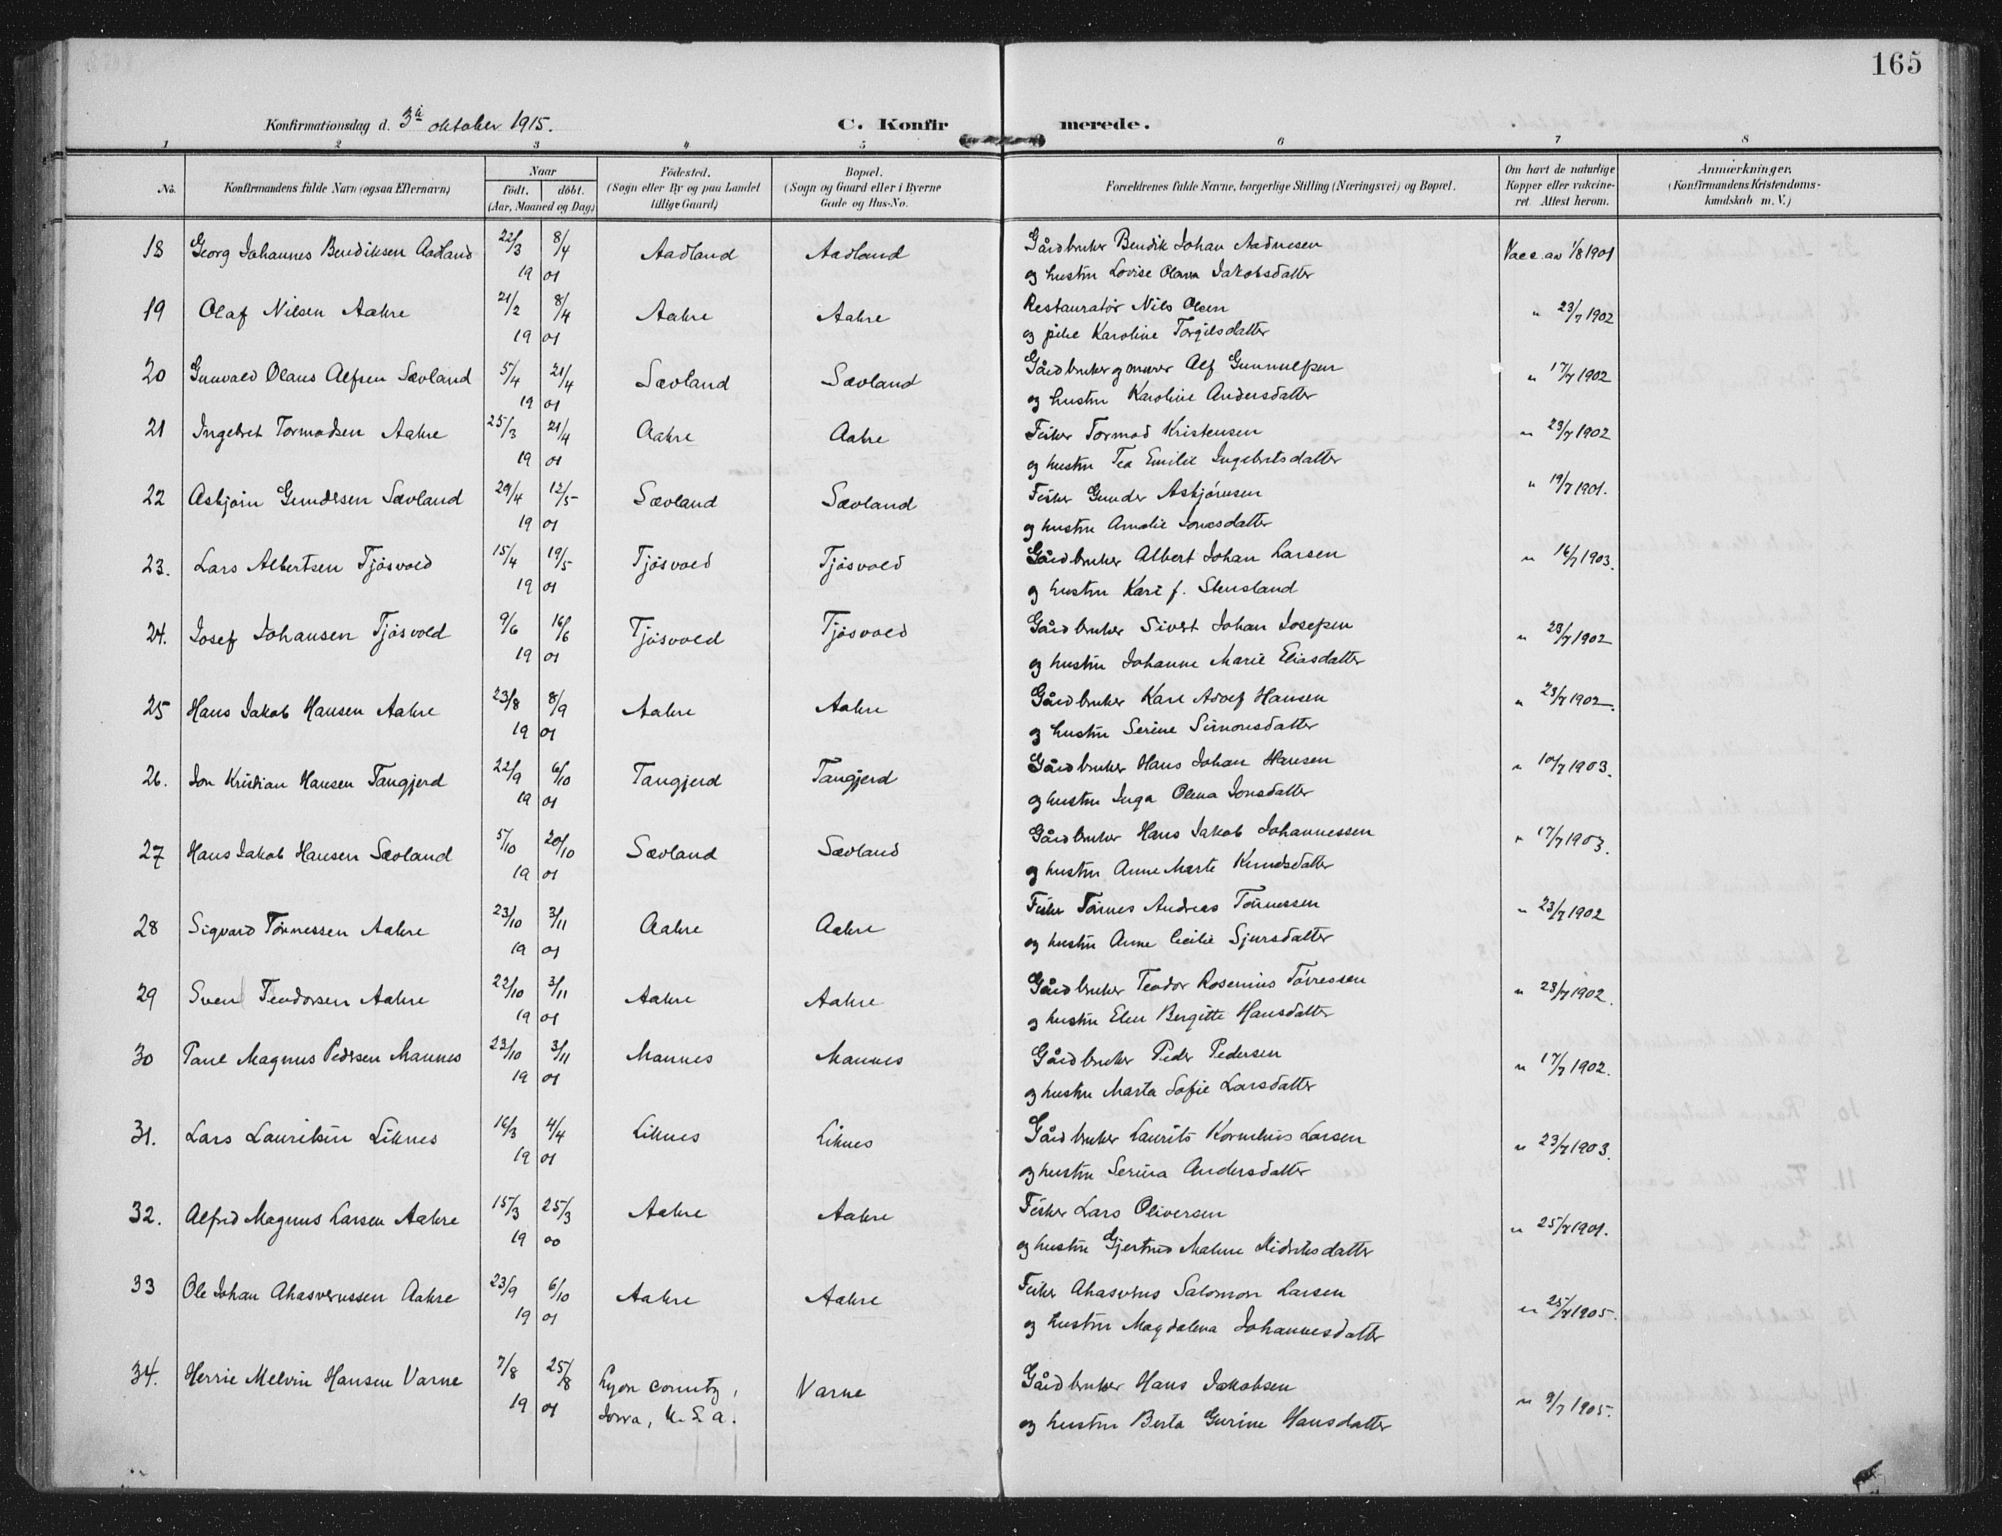 165
Konfirmationsdag d. 3die oktober 1915.
C. Konfirmerede.
1 2 3 4 5 6 7 8
No.
Konfirmandens fulde Navn (ogsaa Efternavn)
Naar
født. døbt.
(Aar, Maaned og Dag)
Födested.
(Sogn eller By og paa Landet
tillige Gaard)
Bopæl.
(Sogn og Gaard eller i Byerne
Gade og Hus-No.
Forældrenes fulde Navne, borgerlige Stilling (Næringsvei) og Bopæl.
Om havt de naturlige
Kopper eller vakcine-
ret. Attest herom.
Anmærkninger.
(Konfirmandens Kristendoms-
kundskab m. V.)
18 Georg Johannes Bendiksen Aadland 22/3 8/4 Aadland Aadland Gårdbruker Bendik Johan Aadnesen Vacc. av 1/8 1901
19 01 og hustru Lovise Olava Jakobsdatter
19 Olaf Nilsen Aakre 21/2 8/4 Aakre Aakre Restauratør Nils Olsen " 23/7 1902
19 01 og pike Karoline Torgilsdatter
20 Gunvald Olaus Alfsen Sævland 5/4 21/4 Sævland Sævland Gårdbruker og murer Alf Gunnulfsen " 17/7 1902
19 01 og hustru Karoline Andersdatter
21 Ingebret Tormodsen Aakre 25/3 21/4 Aakre Aakre Fisker Tormod Kristensen " 23/7 1902
19 01 og hustru Tea Emilie Ingebretsdatter
22 Asbjørn Gundersen Sævland 29/4 12/5 Sævland Sævland Fisker Gunder Asbjørnsen " 19/7 1901.
19 01 og hustru Amalie Jonasdatter
23. Lars Albertsen Tjøsvold 15/4 19/5 Tjøsvold Tjøsvold Gårdbruker Albert Johan Larsen " 16/7 1903.
19 01 og hustru Kari f. Stensland
24. Josef Johansen Tjøsvold 9/6 16/6 Tjøsvold Tjøsvold Gårdbruker Sivert Johan Josefsen " 23/7 1902
19 01 og hustru Johanne Marie Eliasdatter
25 Hans Jakob Hansen Aakre 23/8 8/9 Aakre Aakre Gårdbruker Karl Adolf Hansen " 23/7 1902.
19 01 og hustru Serine Simonsdatter
26. Jon Kristian Hansen Tangjerd 22/9 6/10 Tangjerd Tangjerd Gårdbruker Hans Johan Hansen " 10/7 1903.
19 01 og hustru Inga Olena Jonsdatter
27 Hans Jakob Hansen Sævland 5/10 20/10 Sævland Sævland Gårdbruker Hans Jakob Johannessen " 17/7 1903.
19 01 og hustru Anne Marte Knudsdatter
28 Sigvard Tønnessen Aakre 23/10 3/11 Aakre Aakre Fisker Tønnes Andreas Tønnessen " 23/7 1902
19 01 og hustru Anne Cecilie Sjursdatter
29 Sven Teodorsen Aakre 22/10 3/11 Aakre Aakre Gårdbruker Teodor Rosenius Tørressen " 23/7 1902.
19 01 og hustru Elen Bergitte Hansdatter
30 Paul Magnus Pedersen Mannes 23/10 3/11 Mannes Mannes Gårdbruker Peder Pedersen " 17/7 1902.
19 01 og hustru Marta Sofie Larsdatter
31. Lars Lauritsen Liknes 16/3 4/4 Liknes Liknes Gårdbruker Laurits Kornelius Larsen " 23/7 1903.
19 01 og hustru Serina Andersdatter
32. Alfred Magnus Larsen Aakre 15/3 25/3 Aakre Aakre Fisker Lars Oliversen " 25/7 1901.
19 00 og hustru Gjertrud Malene Didriksdatter
33 Ole Johan Ahasverussen Aakre 23/9 6/10 Aakre Aakre Fisker Ahasverus Salomon Larsen " 25/7 1905.
19 01 og hustru Magdalena Johannesdatter
34. Herrie Melvin Hansen Varne 7/8 25/8 Lyon county, Varne Gårdbruker Hans Jakobsen " 9/7 1905.
19 01 Iowa, U.S.A. og hustru Berta Gurine Hansdatter